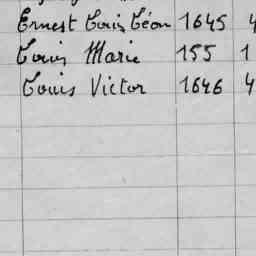 Ernest Louis Léon 1645 4
Louis Marie 155 1
Louis Victor 1646 4